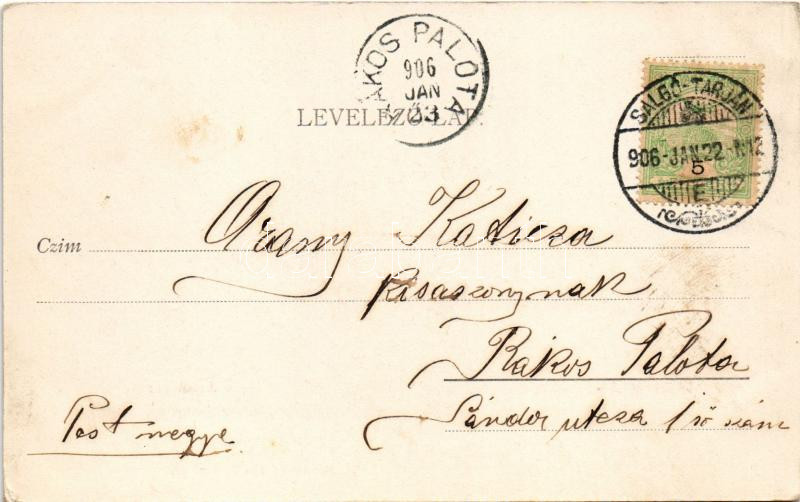 RÁKOS PALOTA
906
JAN
23
LEVELEZŐ-LAP.
SALGÓ-TARJÁN
906-JAN.22-N12
5
E
Czim
Arany Katicza
kisaszonynak
Rákos Palota
Sándor utcza 1ső szám
Pest megye